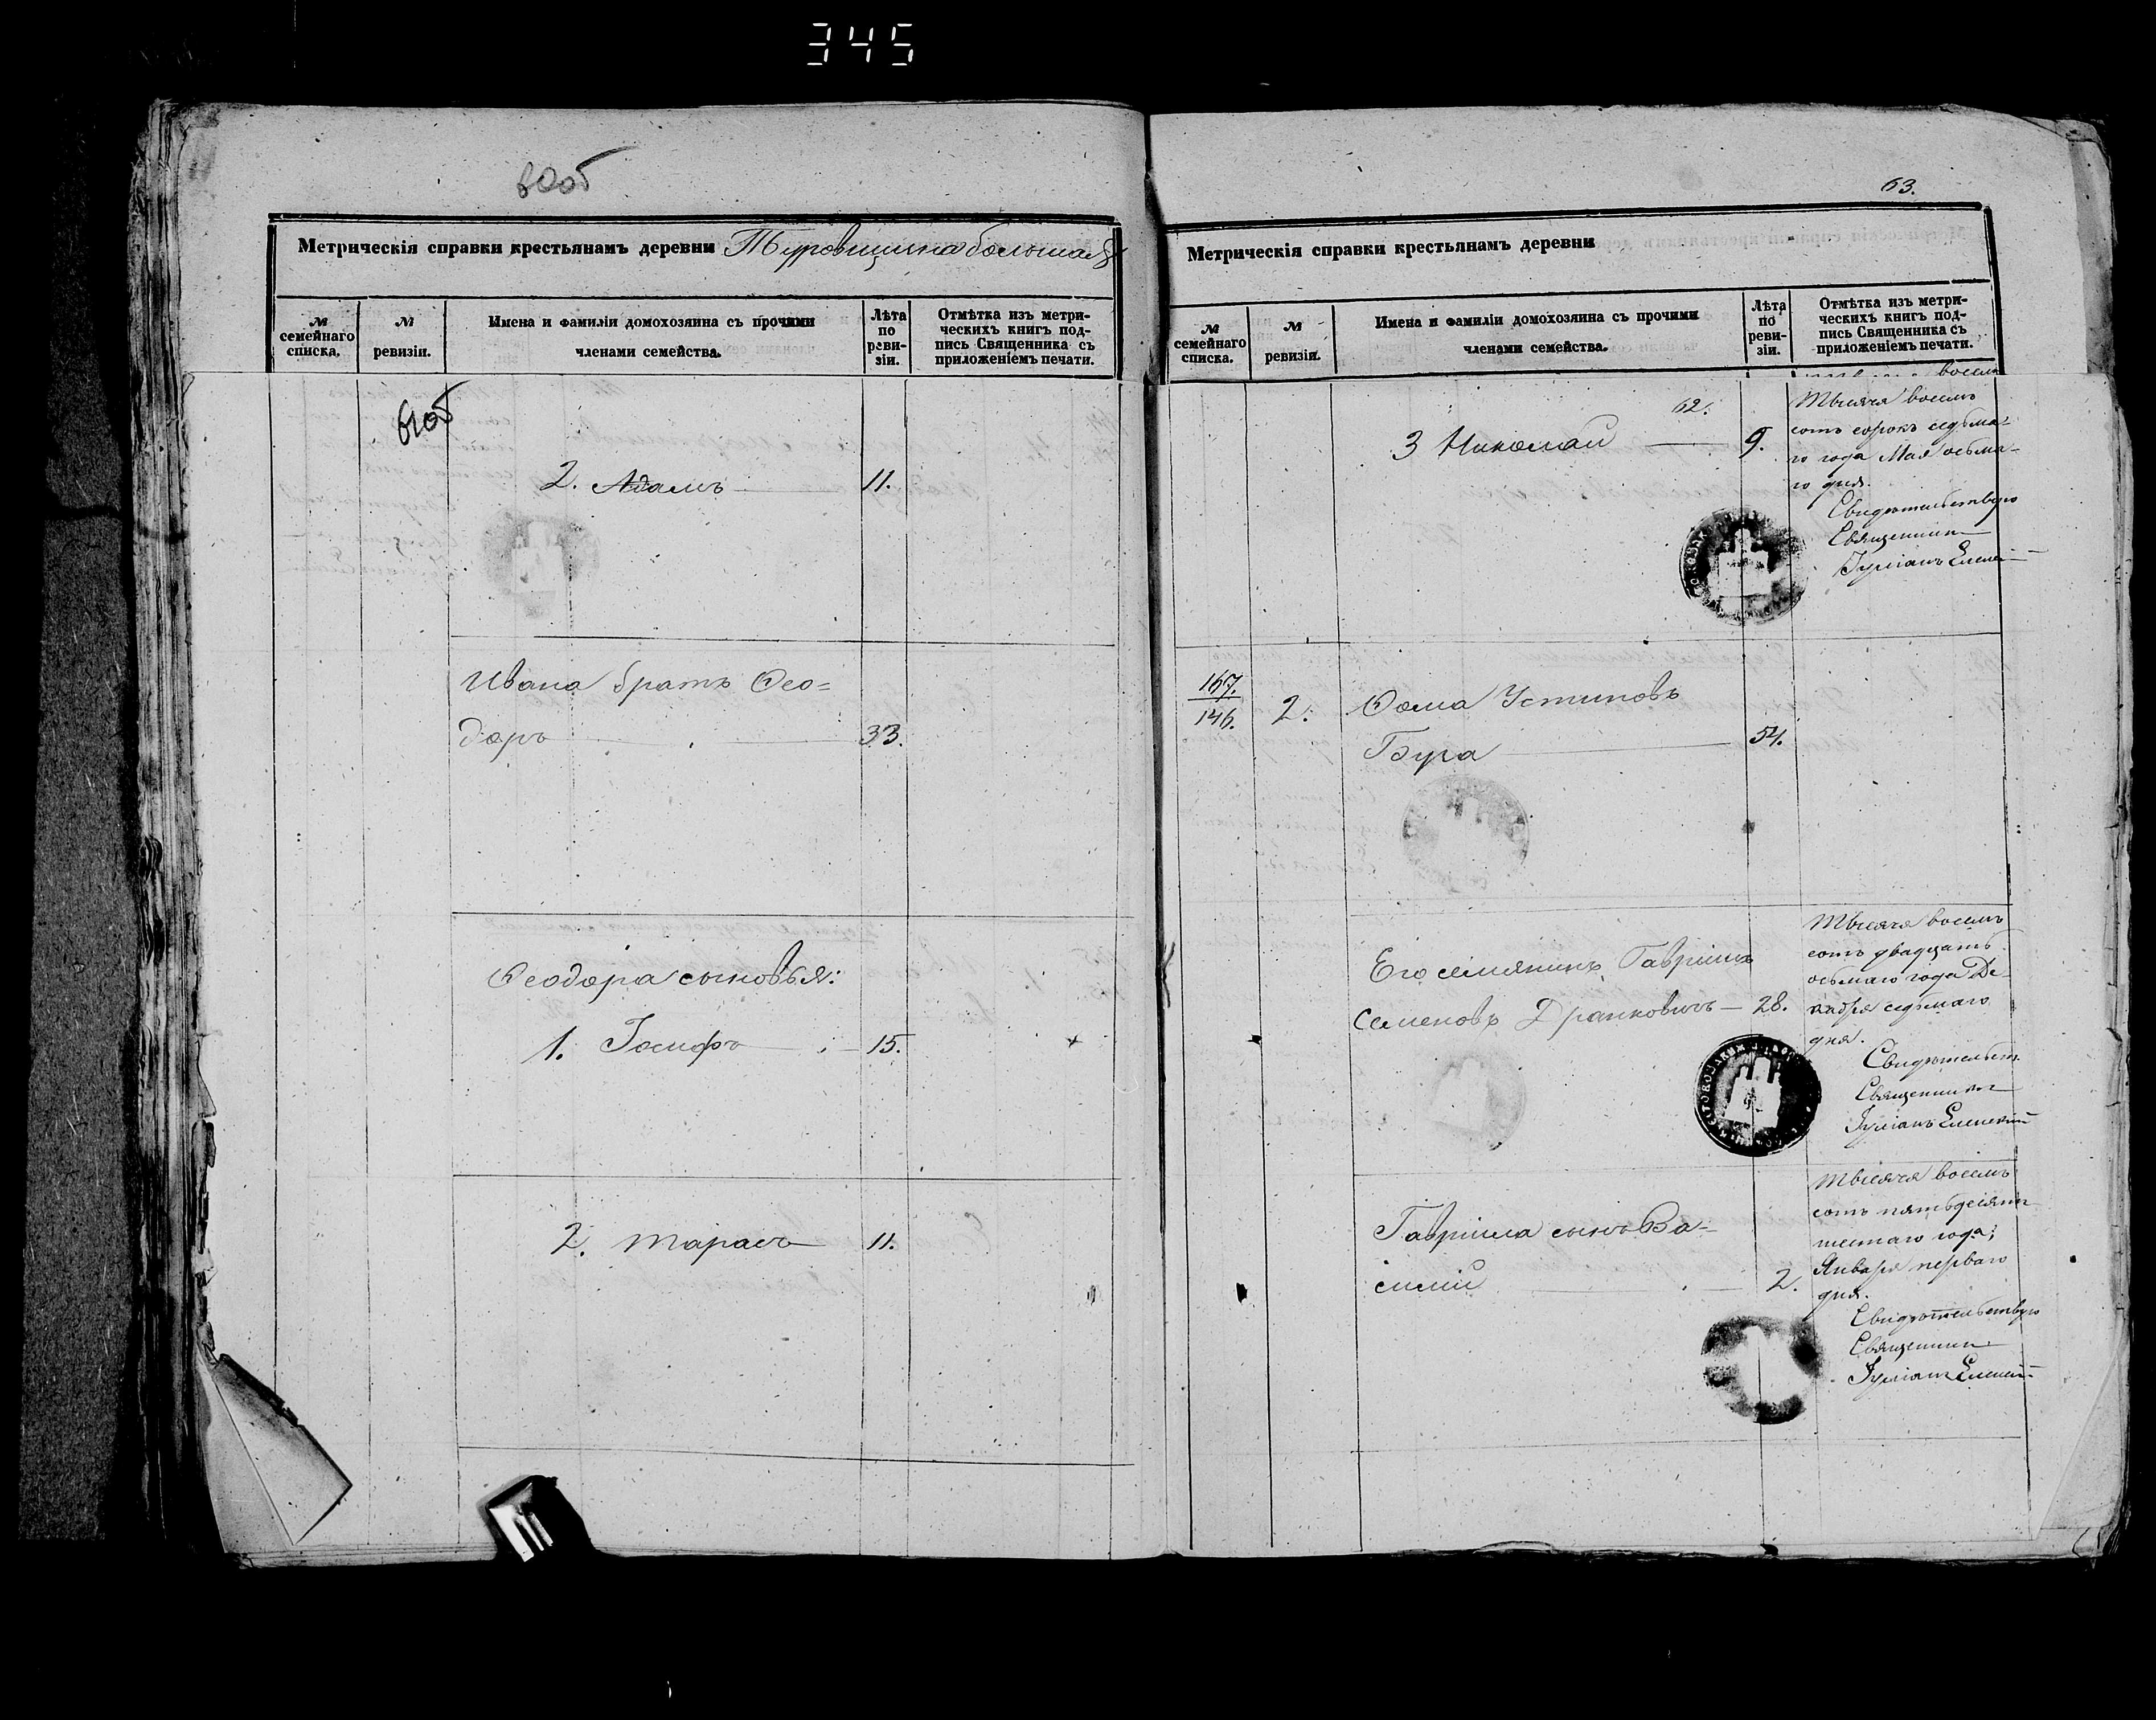 345
60об
Метрическія справки крестьянамъ деревни Туровщина большая
№ семейнаго списка.
№ ревизіи.
Имена и фамиліи домохозяина съ прочими членами семейства.
Лѣта по реви-зіи.
Отмѣтка изъ метри-
ческихъ книгъ под-
пись Священника съ
приложеніемъ печати.
61об
2. Адамъ 11.
Ивана братъ Ѳео=
доръ 33.
Ѳеодора сыновья:
1. Іосифъ 15.
2. Тарасъ 11.
63.
Метрическія справки крестьянамъ деревни
№ семейнаго списка.
№ ревизіи.
Имена и фамиліи домохозяина съ прочими членами семейства.
Лѣта по реви-зіи.
Отмѣтка изъ метри-
ческихъ книгъ под-
пись Священника съ
приложеніемъ печати.
62.
3 Николай 9.
Тысяча восемь
сотъ сорокъ седьма-
го года Мая осьма-
го дня.
Свидѣтельствую
Священникъ
Іуліанъ
167.
146.
2.
Ѳома Устиновъ
Бура 54.
Его семянинъ Гавріилъ
Семеновъ Дранковичъ 28.
Тысяча восемь
сотъ двадцать
осьмаго года Де-
кабря седьмаго
дня.
Свидѣтельст.
Священникъ
Іуліанъ
Гавріила сынъ Ва-
силій 2.
Тысяча восемь
сотъ пятьдесятъ
шестаго года;
Января перваго
дня.
Свидѣтельствую
Священникъ
Іуліанъ